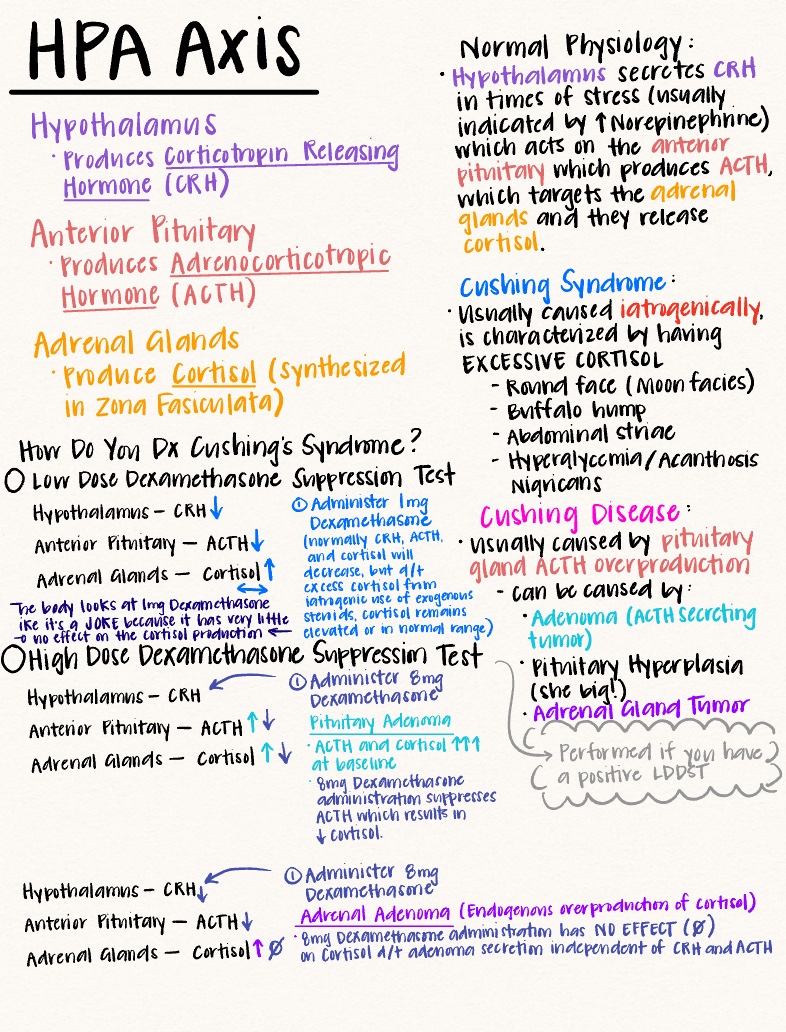 HPA Axis
Hypothalamus
· Produces Corticotropin Releasing
Hormone (CRH)
Anterior Pituitary
· Produces Adrenocorticotropic
Hormone (ACTH)
Adrenal Glands
· Produce Cortisol (synthesized
in Zona Fasiculata)
Normal Physiology:
· Hypothalamus secretes CRH
in times of stress (usually
indicated by ↑ Norepinephrine)
which acts on the anterior
pituitary which produces ACTH,
which targets the adrenal
glands and they release
cortisol.
Cushing Syndrome:
· Usually caused iatrogenically,
is characterized by having
EXCESSIVE CORTISOL
- Round face (Moon facies)
- Buffalo hump
- Abdominal striae
- Hyperglycemia/Acanthosis
Nigricans
Cushing Disease:
· Usually caused by pituitary
gland ACTH overproduction
- can be caused by:
· Adenoma (ACTH secreting
tumor)
· Pituitary Hyperplasia
(she big!)
· Adrenal Gland Tumor
Performed if you have
a positive LDDST
How Do You Dx Cushing's Syndrome?
O Low Dose Dexamethasone Suppression Test
Hypothalamus – CRH ↓
Anterior Pituitary — ACTH ↓
Adrenal Glands — Cortisol ↑
↔
The body looks at 1mg Dexamethasone
like it's a JOKE because it has very little
→ no effect on the cortisol production ←
① Administer 1mg
Dexamethasone
(normally CRH, ACTH,
and cortisol will
decrease, but d/t
excess cortisol from
iatrogenic use of exogenous
steroids, cortisol remains
elevated or in normal range)
O High Dose Dexamethasone Suppression Test
Hypothalamus – CRH
Anterior Pituitary — ACTH ↑ ↓
Adrenal Glands — Cortisol ↑ ↓
① Administer 8mg
Dexamethasone
Pituitary Adenoma
· ACTH and cortisol ↑↑↑
at baseline
· 8mg Dexamethasone
administration suppresses
ACTH which results in
↓ cortisol.
Hypothalamus – CRH ↓
Anterior Pituitary — ACTH ↓
Adrenal Glands — Cortisol ↑ Ø
① Administer 8mg
Dexamethasone
Adrenal Adenoma (Endogenous overproduction of cortisol)
· 8mg Dexamethasone administration has NO EFFECT (Ø)
on Cortisol d/t adenoma secretion independent of CRH and ACTH